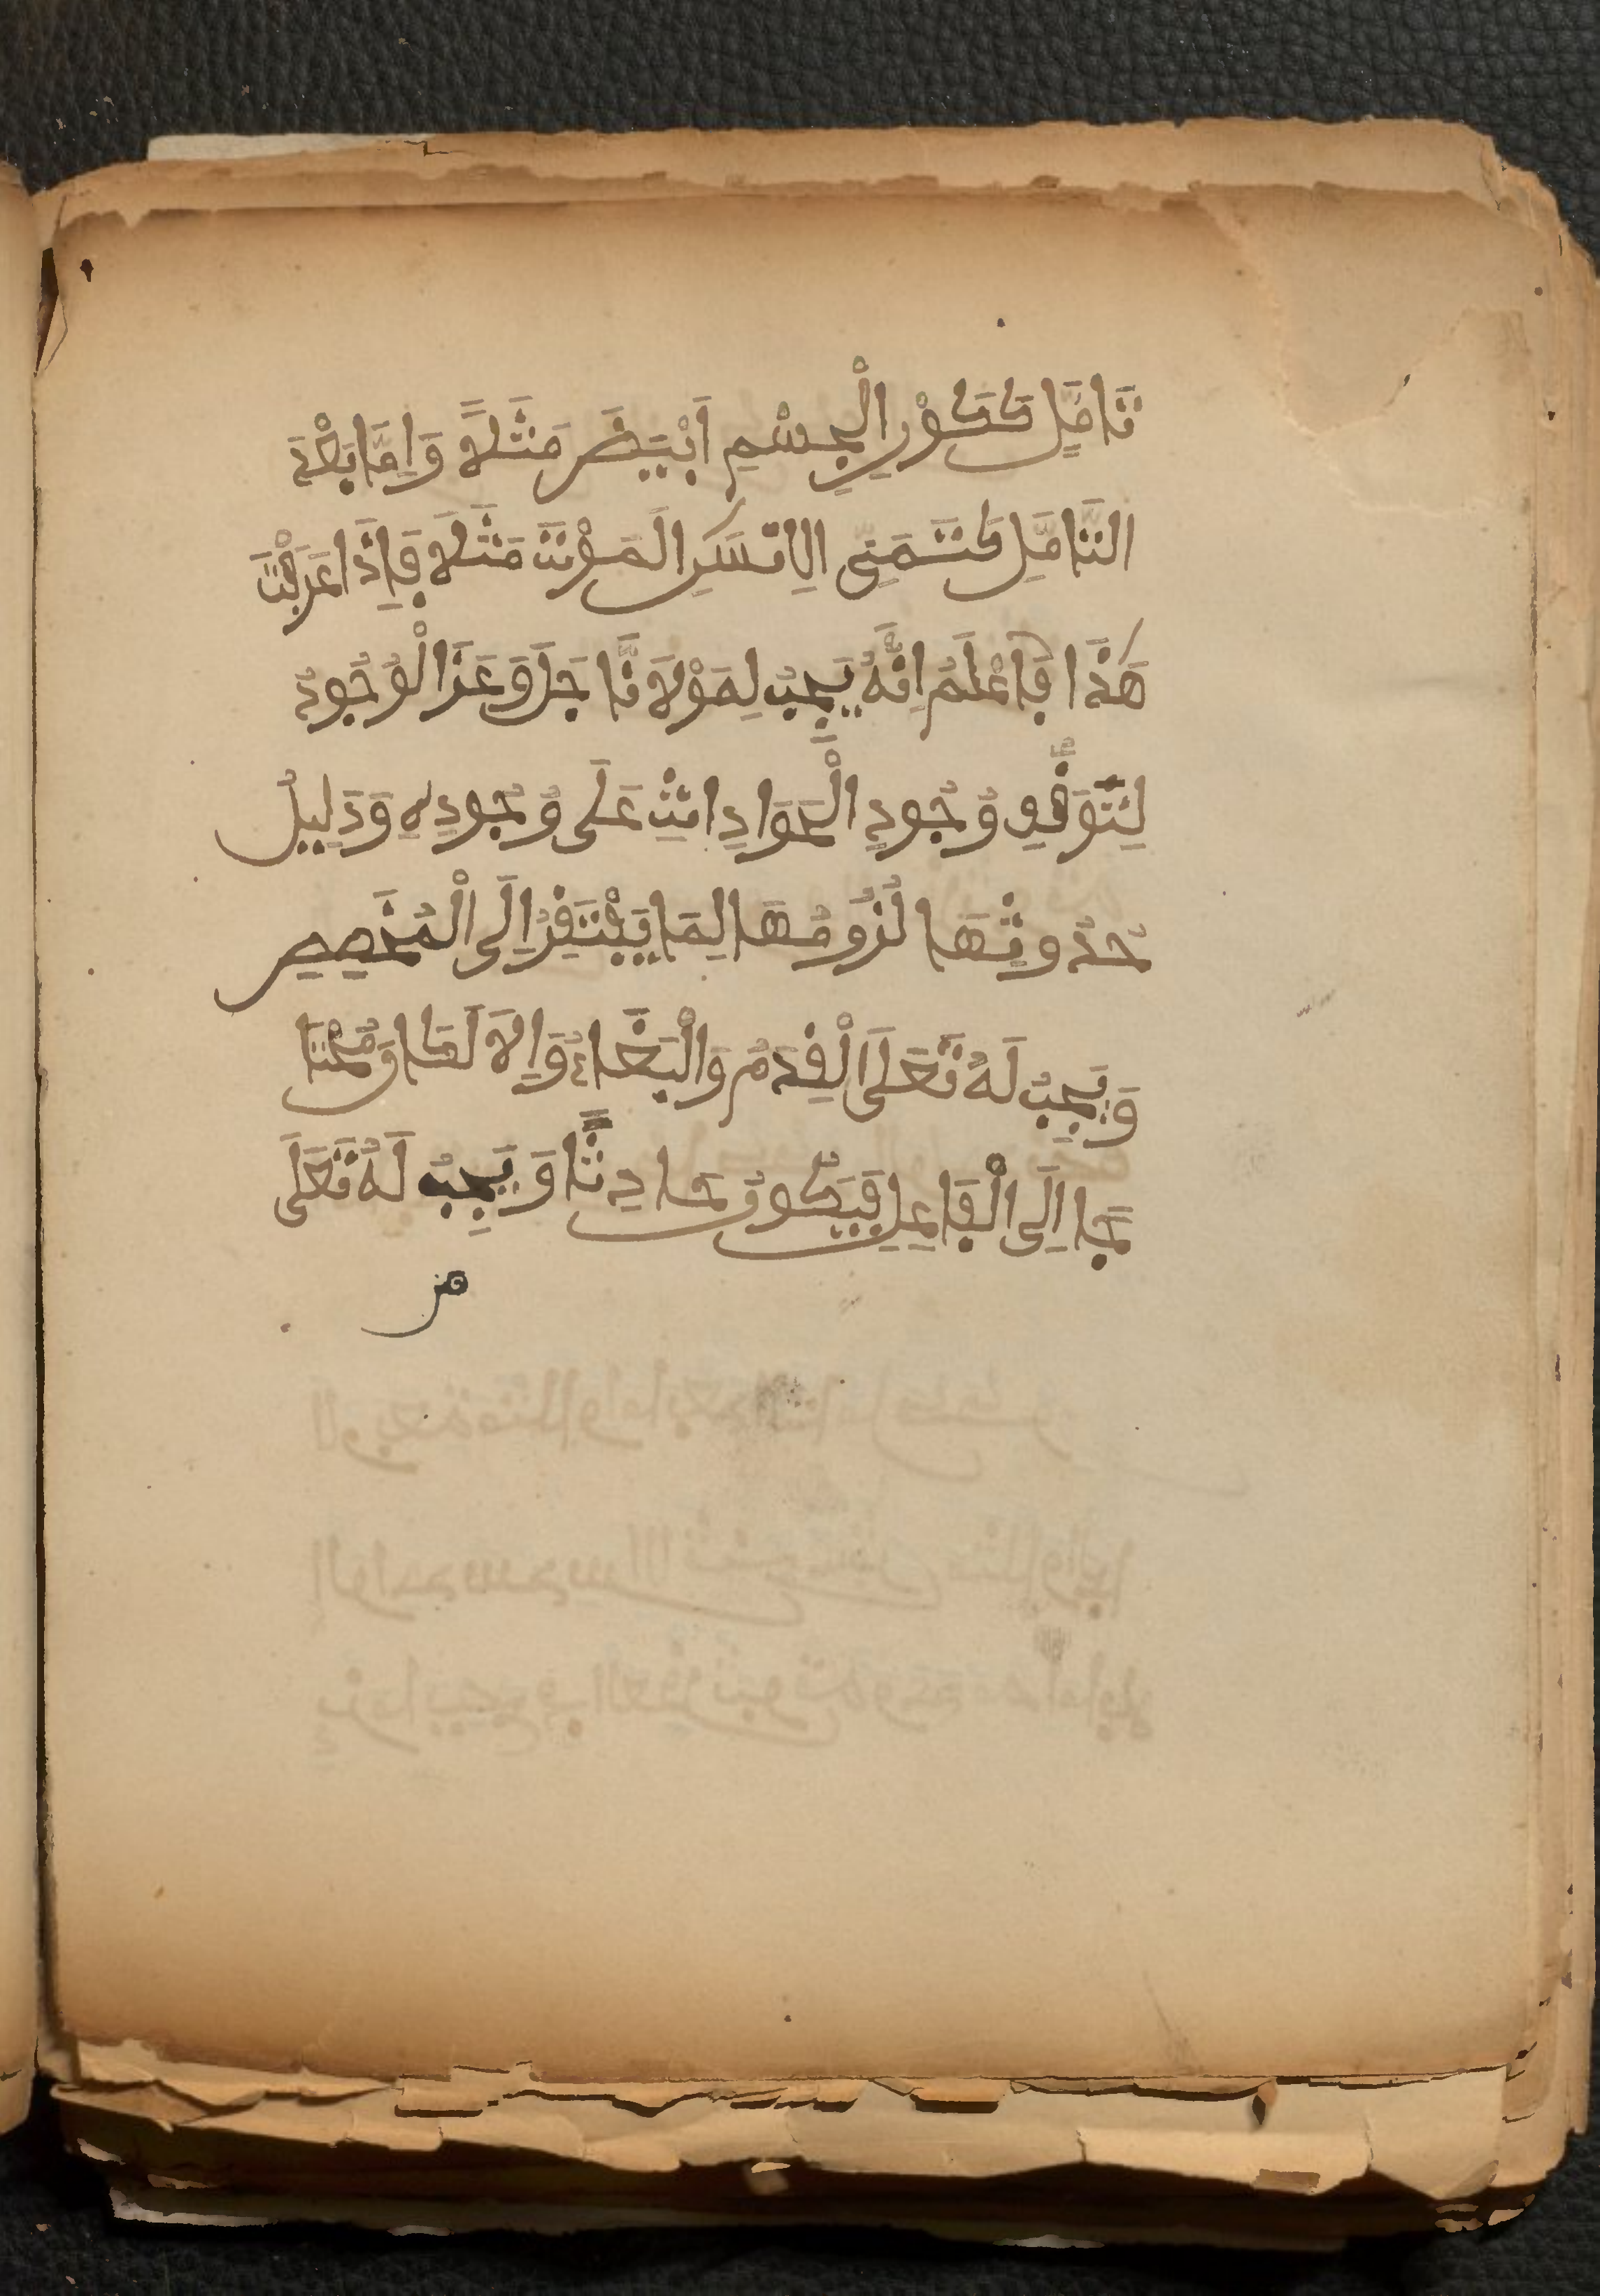 تَامُّلٍ كَكَوْنِ الْجِسْمِ اَبْيَضَ مَثَلاً وَاِمَّا بَعْدَ
التَّامُّلِ كَتَمَنِّي الِانْسَانِ الْمَوْتَ مَثَلاً فَاِذَا عَرَفْتَ
هَذَا فَاعْلَمْ اِنَّهُ يَجِبُ لِمَوْلَانَا جَلَّ وَعَزَّ الْوُجُودُ
لِتَوَقُّفِ وُجُودِ الْحَوَادِاثِ عَلَى وُجُودِهِ وَدَلِيلُ
حُدُوثِهَا لُزُومُهَا لِمَا يَفْتَقِرُ اِلَى الْمُخَصِّصِ
وَيَجِبُ لَهُ تَعَلَى الْقِدَمُ وَالْبَقَاءُ وَاِلَّا لَكَانَ مُحْتَا
جًا اِلَى الْفَاعِلِ فَيَكُونُ حَادِثًا وَيَجِبُ لَهُ تَعَلَى